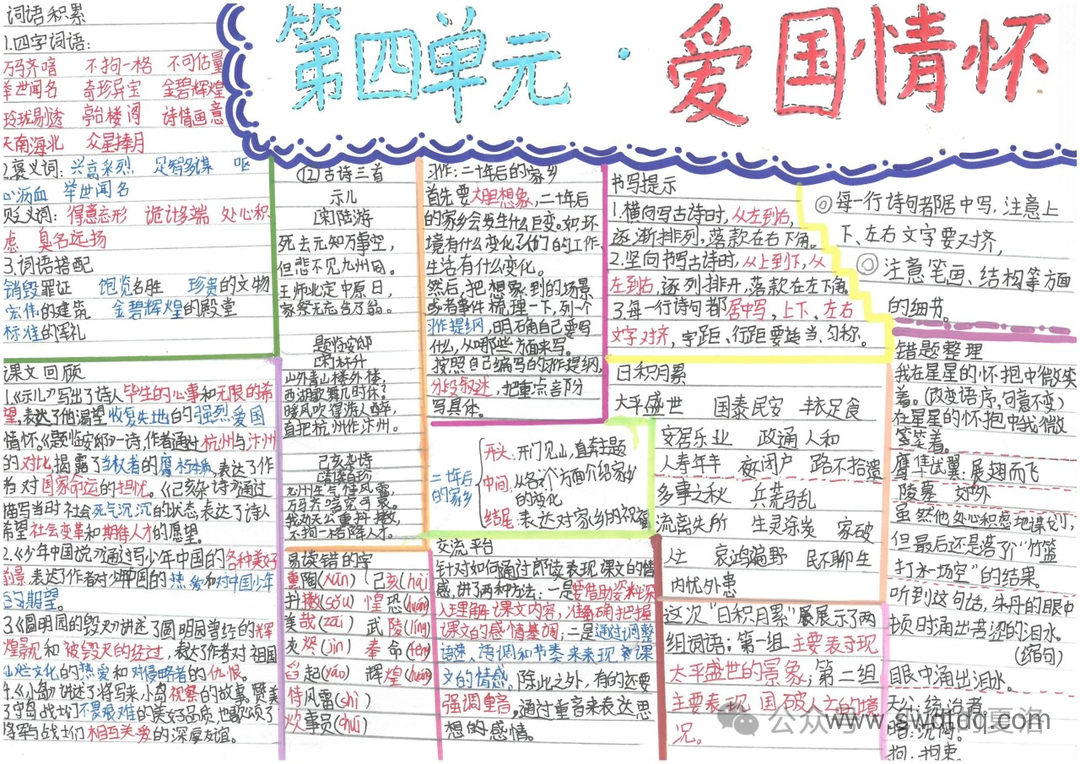 第四单元·爱国情怀
词语积累
1.四字词语:
万马齐喑 不拘一格 不可估量
举世闻名 奇珍异宝 金碧辉煌
玲珑剔透 亭台楼阁 诗情画意
天南海北 众星拱月
2.褒义词: 兴高采烈 足智多谋 呕
心沥血 举世闻名
贬义词: 得意忘形 诡计多端 处心积
虑 臭名远扬
3.词语搭配
销毁罪证 饱览名胜 珍贵的文物
宏伟的建筑 金碧辉煌的殿堂
标准的军礼
课文回顾
1.《示儿》写出了诗人毕生的心事和无限的希
望,表达了他渴望收复失地的强烈爱国
情怀。《题临安邸》一诗,作者通过杭州与汴州
的对比,揭露了当权者的腐朽,表达了作
者对国家命运的担忧。《己亥杂诗》通过
描写当时社会死气沉沉的状态,表达了诗人
希望社会变革和期待人才的愿望。
2.《少年中国说》通过写少年中国的各种美好
前景,表达了作者对少年中国的热爱和对中国少年
的期望。
3.《圆明园的毁灭》讲述了圆明园曾经的辉
煌景观和被毁灭的经过,表达了作者对祖国
灿烂文化的热爱和对侵略者的仇恨。
4.《小岛》讲述了将军来小岛视察的故事,赞美
了守岛战士们不畏艰难的美好品质,也歌颂了
将军与战士们相互关爱的深厚友谊。
(12)古诗三首
示儿
[宋]陆游
死去元知万事空,
但悲不见九州同。
王师北定中原日,
家祭无忘告乃翁。
题临安邸
[宋]林升
山外青山楼外楼,
西湖歌舞几时休?
暖风熏得游人醉,
直把杭州作汴州。
己亥杂诗
[清]龚自珍
九州生气恃风雷,
万马齐喑究可哀。
我劝天公重抖擞,
不拘一格降人才。
易读错的字
熏陶(xūn) 己亥(hài)
抖擞(sǒu) 惶恐(huáng)
哀哉(zāi) 武陵(líng)
奉命(fèng)
辉煌(huáng)
恃风雷(shì)
炊事员(chuī)
习作:二十年后的家乡
首先要大胆想象,二十年后
的家乡会发生什么巨变。如环
境有什么变化?人们的工作、
生活有什么变化。
然后,把想象到的场景
或者事件梳理一下,列个
习作提纲,明确自己要写
什么,从哪些方面来写。
按照自己编写的习作提纲,
分段叙述,把重点部分
写具体。
二十年后的家乡
开头:开门见山,直奔主题
中间:从各个方面介绍家乡
的变化
结尾:表达对家乡的祝福
交流平台
针对如何通过朗读表现课文的情
感,讲了两种方法:一是要借助资料深
入理解课文内容,准确把握
课文的感情基调,二是通过调整
语速、语调和节奏来表现课
文的情感。除此之外,有的还要
强调重音,通过重音来表达思
想的感情。
书写提示
1.横向写古诗时,从左到右,
逐渐排列。落款在右下角。
2.竖向书写古诗时,从上到下,从
左到右,逐列排开,落款在左下角。
3.每一行诗句都居中写,上下、左右
文字对齐,字距、行距要适当、匀称。
◎每一行诗句都居中写,注意上
下、左右文字要对齐,
◎注意笔画、结构等方面
的细节。
日积月累
太平盛世 国泰民安 丰衣足食
安居乐业 政通人和
人寿年丰 夜不闭户 路不拾遗
多事之秋 兵荒马乱
流离失所 生灵涂炭 家破
人亡 哀鸿遍野 民不聊生
内忧外患
这次“日积月累”展示了两
组词语:第一组主要表现
太平盛世的景象;第二组
主要表现国破人亡的境
况。
错题整理
我在星星的怀抱中微笑
着。(改变语序,句意不变)
在星星的怀抱中我微
笑着。
鹰隼试翼,展翅而飞
陵墓 郊外
虽然他处心积虑地谋划,
但最后还是落了个“竹篮
打水一场空”的结果。
听到这句话,朱丹的眼中
顿时涌出苦涩的泪水。
(缩句)
眼中涌出泪水。
喑:沉闷。
拘:拘束。
公众号·夏洛
www.swdtdq.com